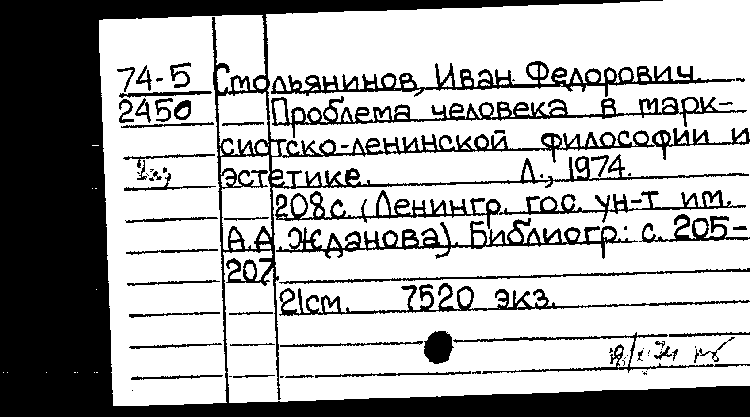 74-5 Смольянинов, Иван Федорович
2450 Проблема человека в марк-
систско-ленинской философии и
эстетике. Л., 1974.
208с. (Ленингр. гос. ун-т им.
А.А. Жданова). Библиогр.: с. 205-
207.
21см. 7520 экз.